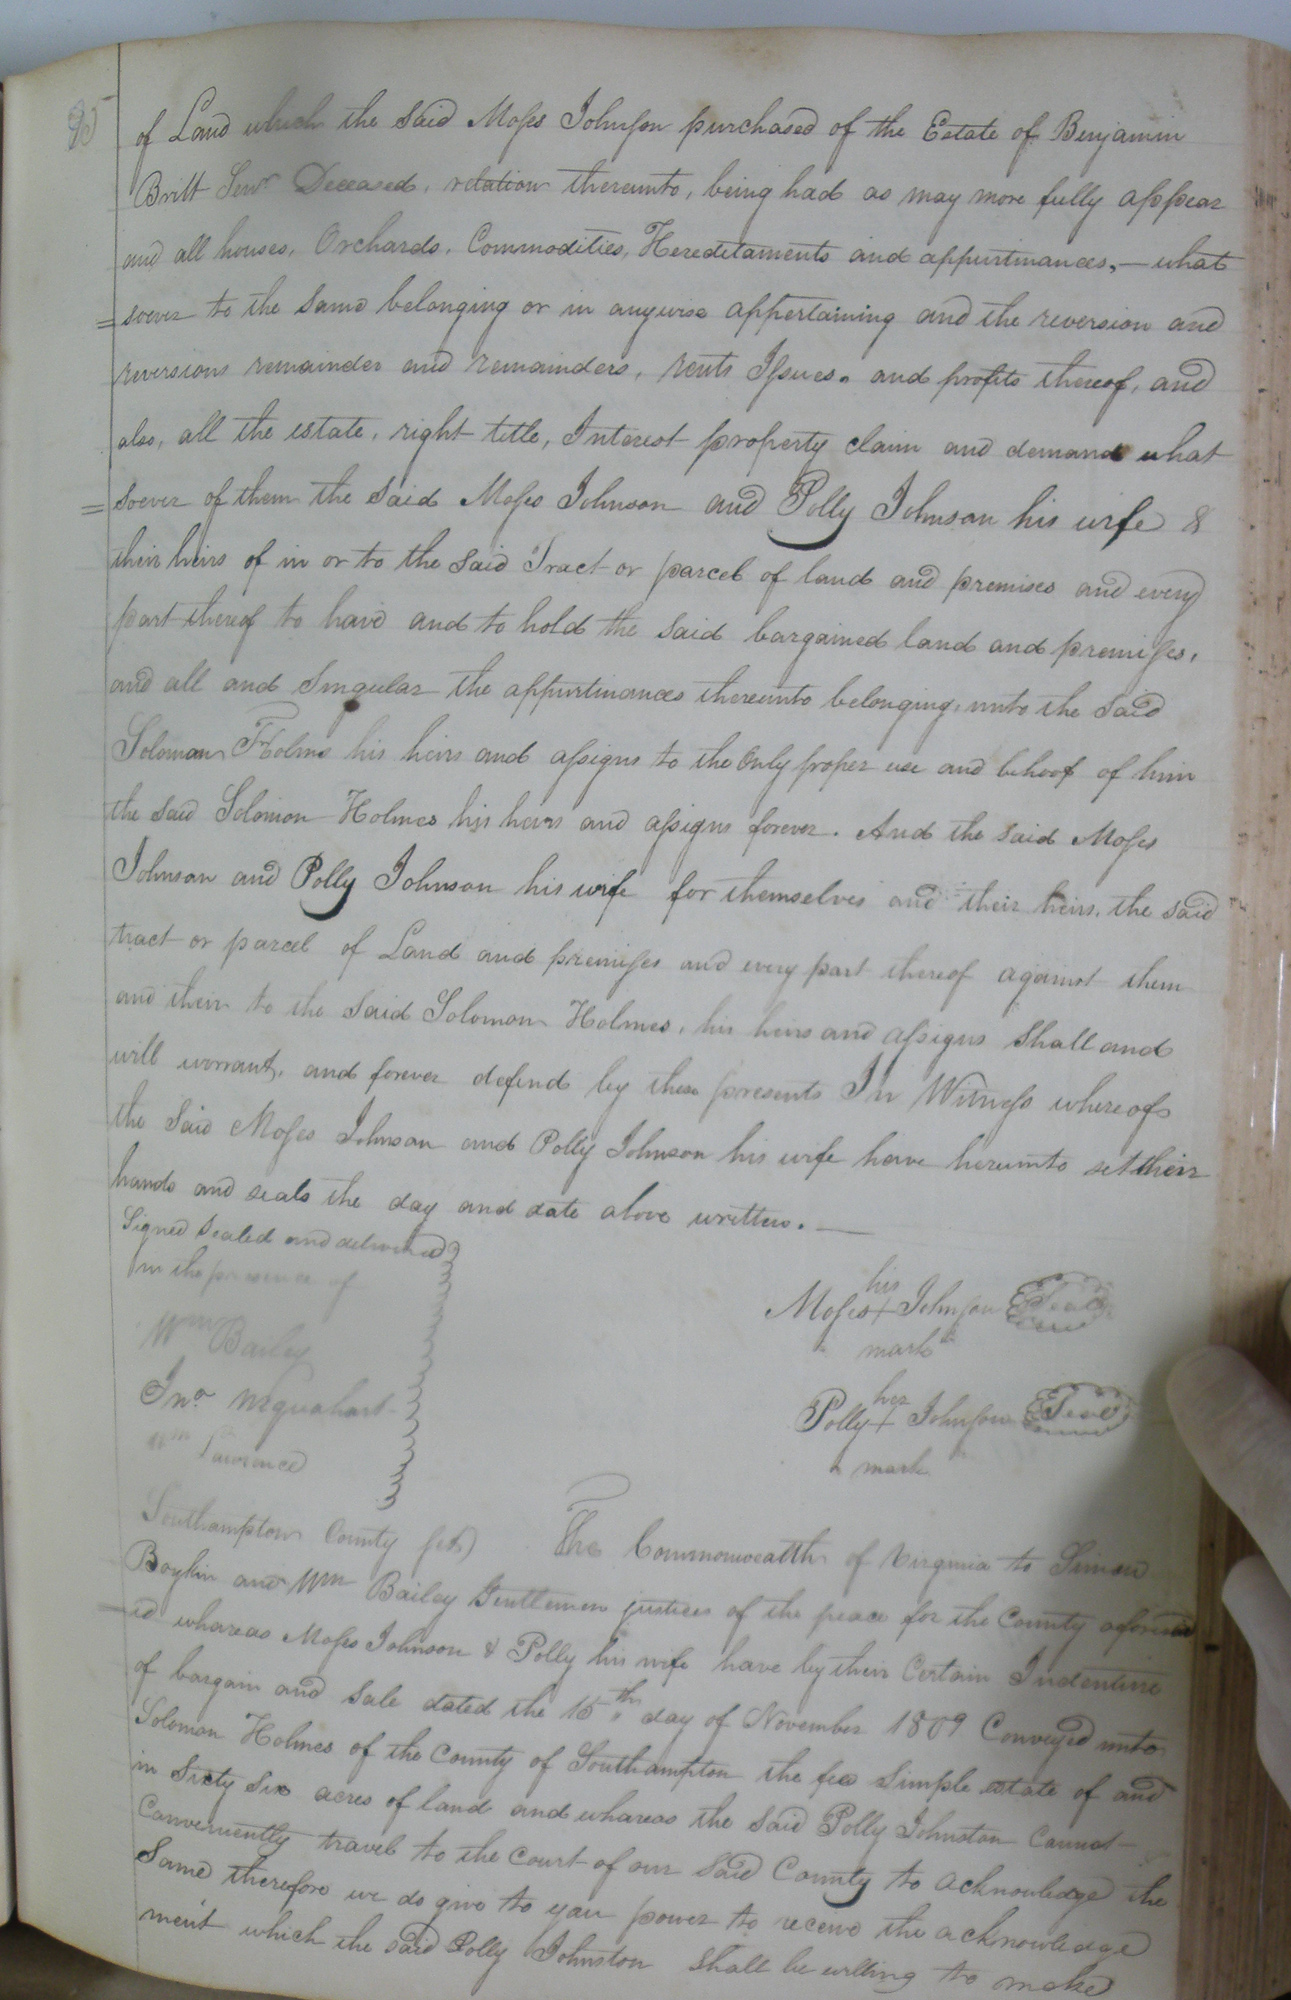 95
of Land which the said Moses Johnson purchased of the Estate of Benjamin
Britt Senr Deceased, relation thereunto, being had as may more fully appear
and all houses, Orchards, Commodities, Hereditaments and appurtinances,— what
= soever to the same belonging or in anywise appertaining and the reversion and
reversions remainder and remainders, rents Issues, and profits thereof, and
also, all the estate, right title, Interest property claim and demand what
= soever of them the said Moses Johnson and Polly Johnson his wife &
their heirs of in or to the said Tract or parcel of land and premises and every
part thereof to have and to hold the said bargained land and premises,
and all and Singular the appurtinances thereunto belonging, unto the said
Soloman Holms his heirs and assigns to the Only proper use and behoof of him
the said Solomon Holmes his heirs and assigns forever. And the said Moses
Johnson and Polly Johnson his wife for themselves and their heirs, the said
tract or parcel of Land and premises and every part thereof against them
and their to the said Solomon Holmes, his heirs and assigns shall and
will warrant, and forever defend by these presents In Witness whereof
the said Moses Johnson and Polly Johnson his wife have hereunto set their
hands and seals the day and date above written.—
Signed Sealed and delivered
in the presence of
Wm Bailey
Jno
Wm Lawrence
his
Moses + Johnson Seal
mark
her
Polly + Johnson Seal
mark
Southampton County The Commonwealth of Virginia to Simon
Boykin and Wm Bailey Gentlemen justices of the peace for the County aforesa
= id whareas Moses Johnson & Polly his wife have by their Certain Indenture
of bargain and sale dated the 15th day of November 1809 Conveyed unto
Solomon Holmes of the County of Southampton the fee simple estate of and
in Sixty Six acres of land and whareas the said Polly Johnston Cannot
Conveniently travel to the Court of our said County to acknowledge the
Same therefore we do give to you power to receive the acknowledge
ment which the said Polly Johnston shall be willing to make